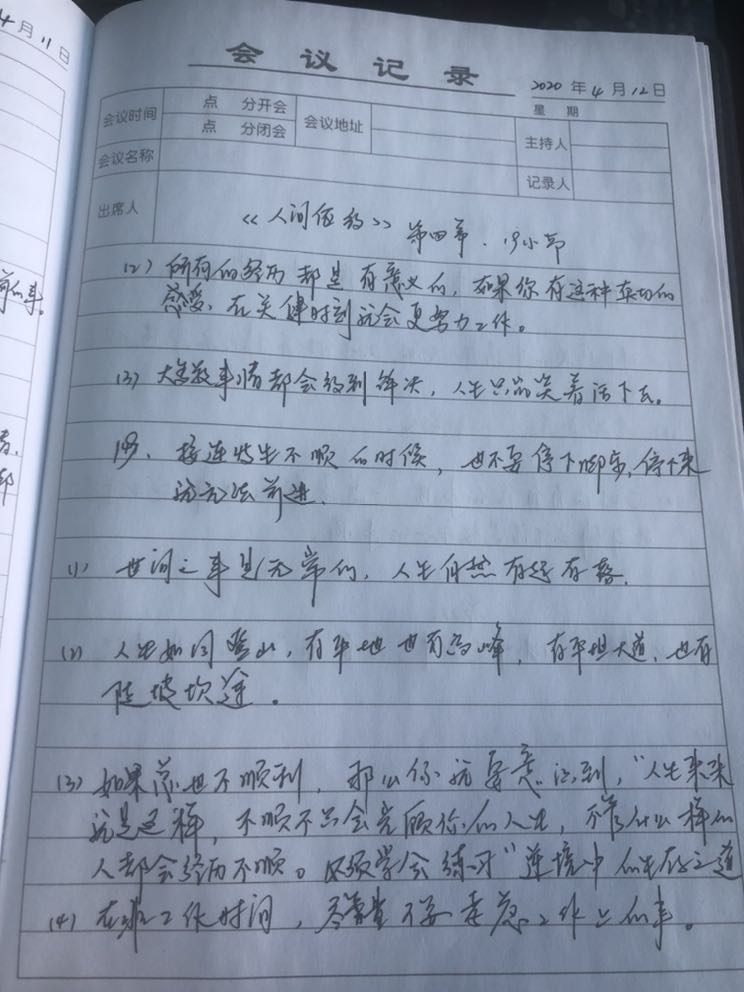 4月11日
会议记录
2020年4月12日
星 期
会议时间 点 分开会 会议地址 主持人
点 分闭会
会议名称 记录人
出席人
《人间值得》 第四章、 小节
(2) 所有的经历都是有意义的，如果你有这种真切的
感受，在关健时刻就会更努力工作。
(3) 大多数事情都会得到解决，人生只需笑着活下去。
接连发生不顺的时候，也不要停下脚步，停下来
就无法前进.
(1) 世间之事是无常的，人生自然有起有落.
(2) 人生如同登山，有平地也有高峰，有平坦大道，也有
陡坡坎途。
(3) 如果总也不顺利，那么你就要意识到，"人生本来
就是这样，不顺不只会光顾你的人生，不管什么样的
人都会经历不顺。必须学会练习"逆境中的生存之道
(4) 在非工作时间，尽量不要考虑工作上的事。